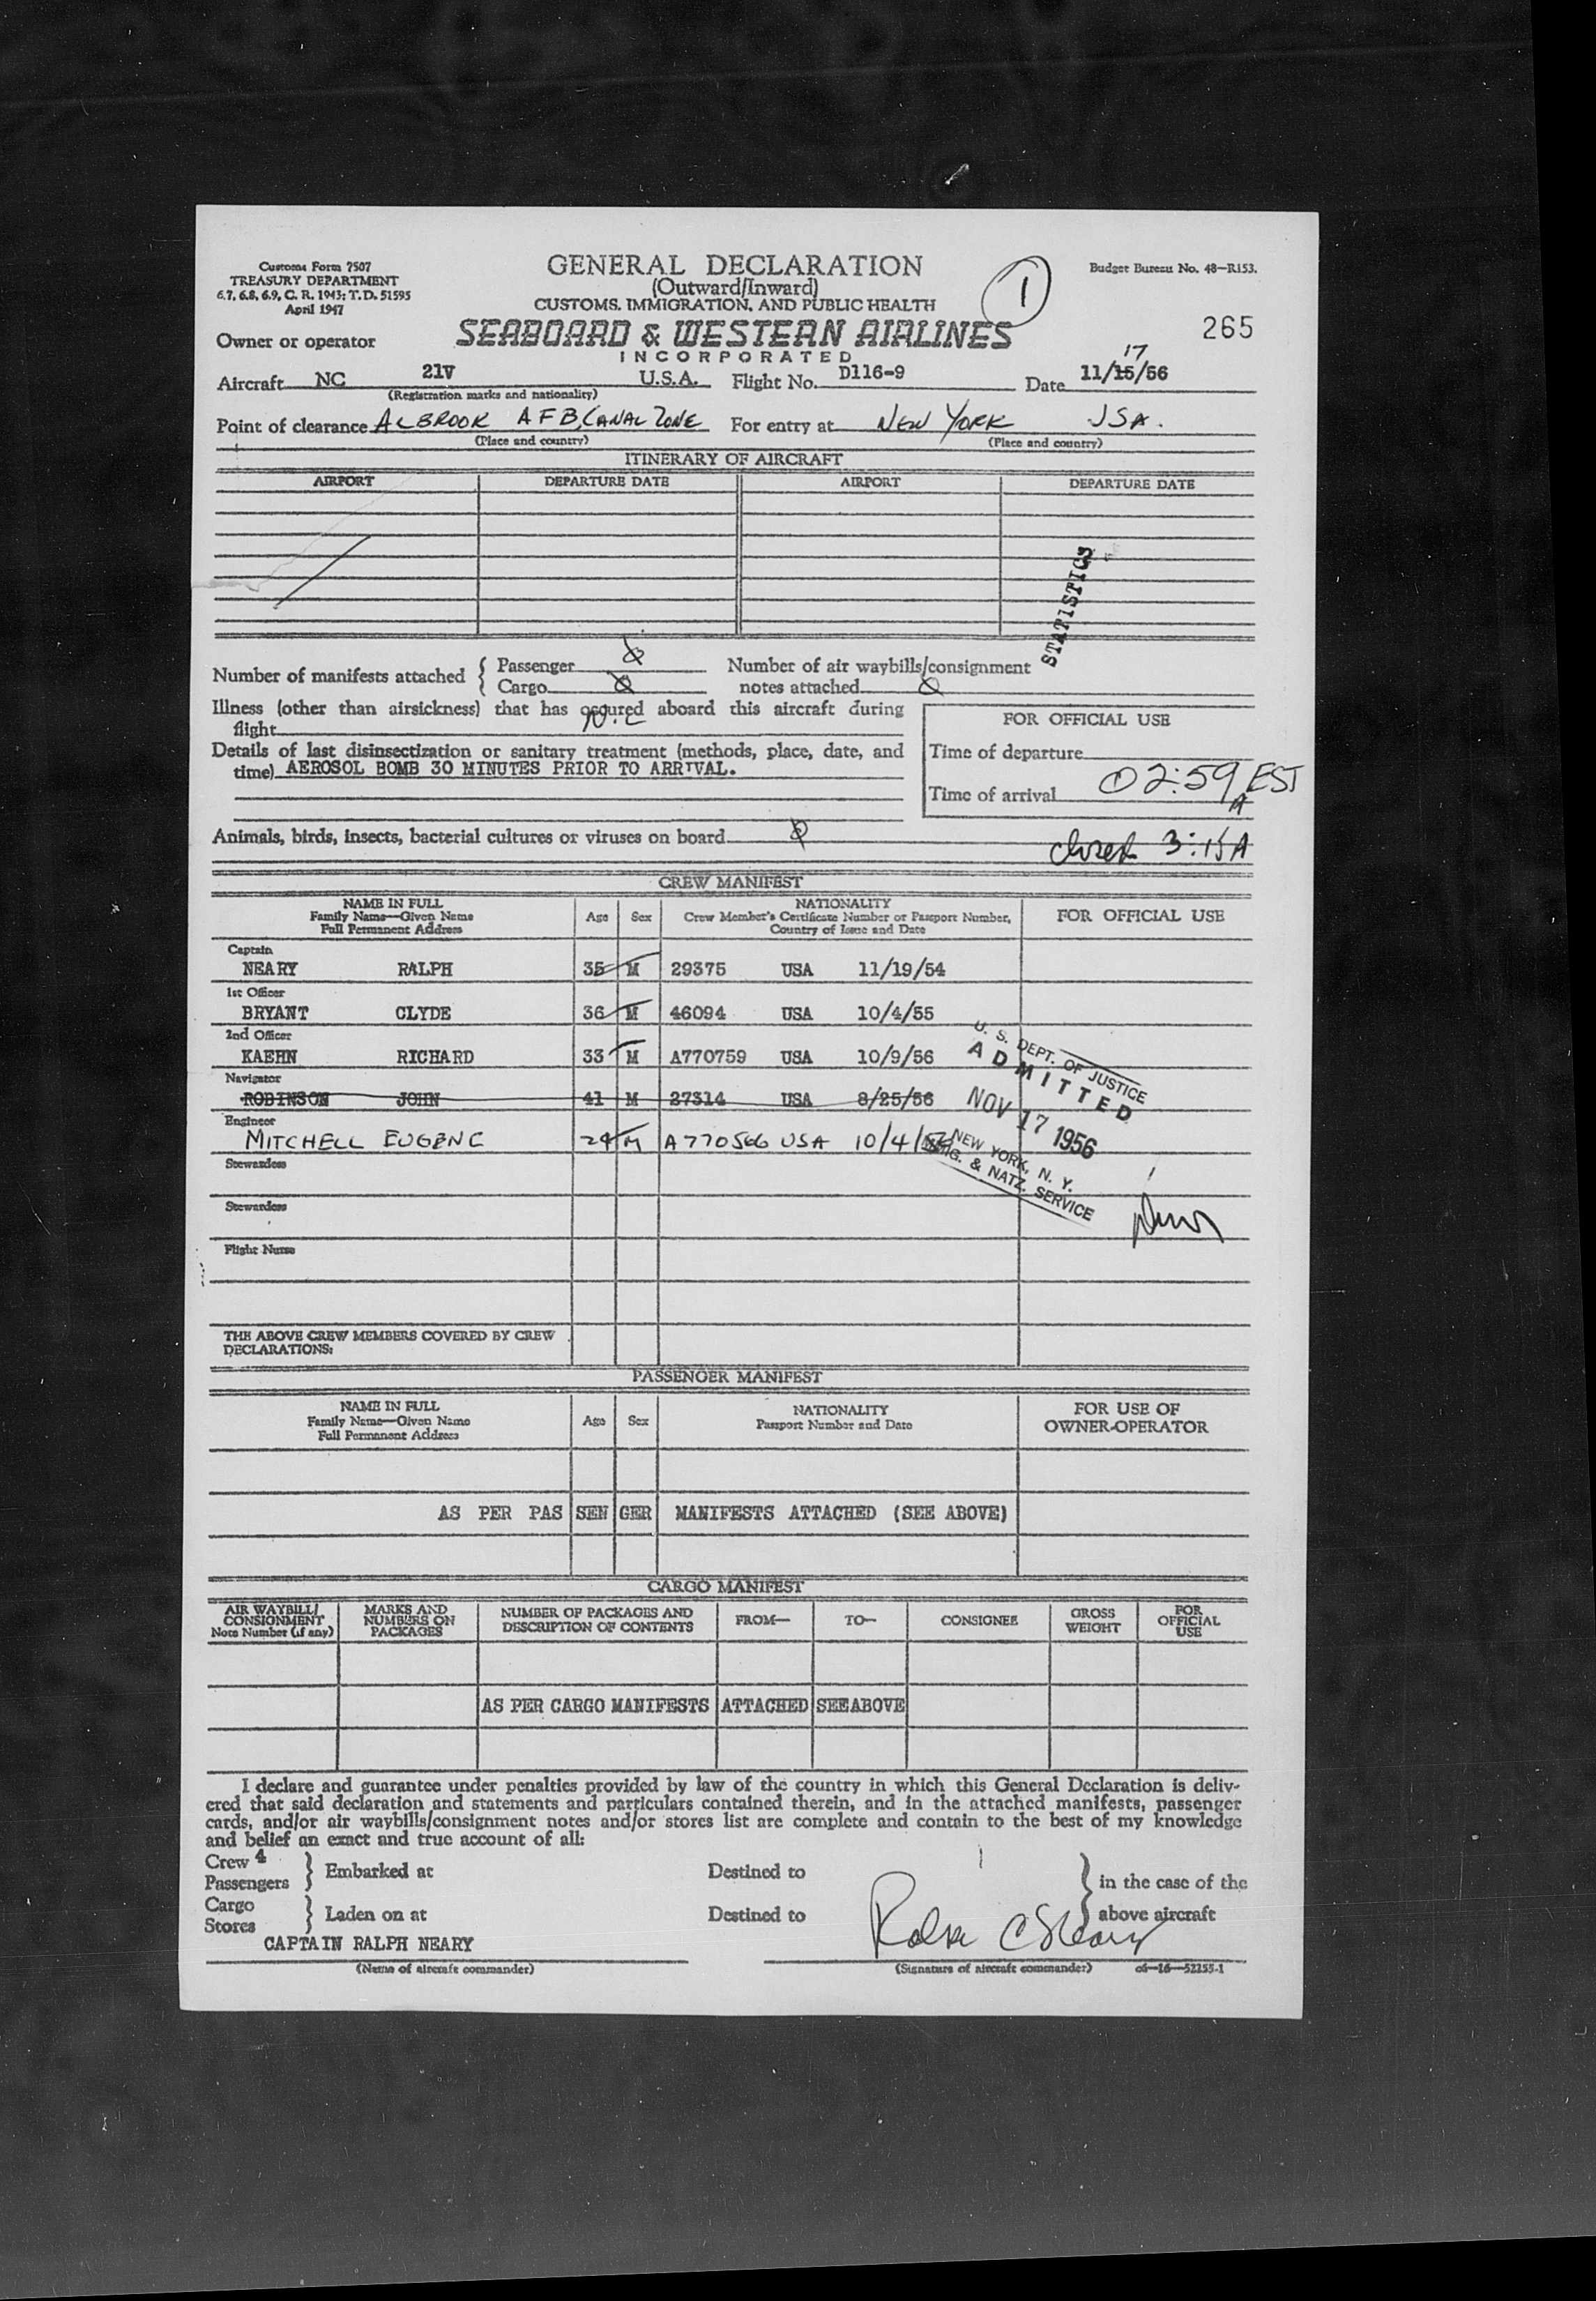 Customs Form 7507
TREASURY DEPARTMENT
6.7, 6.8, 6.9, C. R. 1943; T.D. 51595
April 1947
GENERAL DECLARATION
(Outward/Inward)
CUSTOMS, IMMIGRATION, AND PUBLIC HEALTH
1
Budget Bureau No. 48—R153.
265
Owner or operator SEABOARD & WESTERN AIRLINES
INCORPORATED
17
Aircraft NC 21V U.S.A. Flight No. D116-9 Date 11/15/56
(Registration marks and nationality)
Point of clearance ALBROOK AFB, CANAL ZONE For entry at NEW YORK USA.
(Place and country) (Place and country)
ITINERARY OF AIRCRAFT
AIRPORT DEPARTURE DATE AIRPORT DEPARTURE DATE
STATISTICS
Number of manifests attached { Passenger Number of air waybills/consignment
Cargo notes attached
Illness (other than airsickness) that has occured aboard this aircraft during
flight
FOR OFFICIAL USE
Details of last disinsectization or sanitary treatment (methods, place, date, and
time) AEROSOL BOMB 30 MINUTES PRIOR TO ARRIVAL.
Time of departure
Time of arrival 02:59 A EST
Animals, birds, insects, bacterial cultures or viruses on board
closed 3:15A
CREW MANIFEST
NAME IN FULL
Family Name—Given Name
Full Permanent Address
Age Sex
NATIONALITY
Crew Member's Certificate Number or Passport Number,
Country of Issue and Date
FOR OFFICIAL USE
Captain
NEARY RALPH 35 M 29375 USA 11/19/54
1st Officer
BRYANT CLYDE 36 M 46094 USA 10/4/55
2nd Officer
KAEHN RICHARD 33 M A770759 USA 10/9/56
Navigator
ROBINSON JOHN 41 M 27314 USA 8/25/56
Engineer
MITCHELL EUGENE 29 M A770566 USA 10/4/
U. S. DEPT. OF JUSTICE
ADMITTED
NOV 17 1956
NEW YORK, N. Y.
IMMIG. & NATZ. SERVICE
Stewardess
Stewardess
Flight Nurse
THE ABOVE CREW MEMBERS COVERED BY CREW
DECLARATIONS:
PASSENGER MANIFEST
NAME IN FULL
Family Name—Given Name
Full Permanent Address
Age Sex
NATIONALITY
Passport Number and Date
FOR USE OF
OWNER-OPERATOR
AS PER PAS SEN GER MANIFESTS ATTACHED (SEE ABOVE)
CARGO MANIFEST
AIR WAYBILL/
CONSIGNMENT
Note Number (if any)
MARKS AND
NUMBERS ON
PACKAGES
NUMBER OF PACKAGES AND
DESCRIPTION OF CONTENTS
FROM— TO— CONSIGNEE
GROSS
WEIGHT
FOR
OFFICIAL
USE
AS PER CARGO MANIFESTS ATTACHED SEE ABOVE
I declare and guarantee under penalties provided by law of the country in which this General Declaration is deliv-
ered that said declaration and statements and particulars contained therein, and in the attached manifests, passenger
cards, and/or air waybills/consignment notes and/or stores list are complete and contain to the best of my knowledge
and belief an exact and true account of all:
Crew 4
Passengers } Embarked at Destined to } in the case of the
Cargo
Stores } Laden on at Destined to above aircraft
CAPTAIN RALPH NEARY
Ralph C Neary
(Name of aircraft commander) (Signature of aircraft commander) c6—16—52255-1